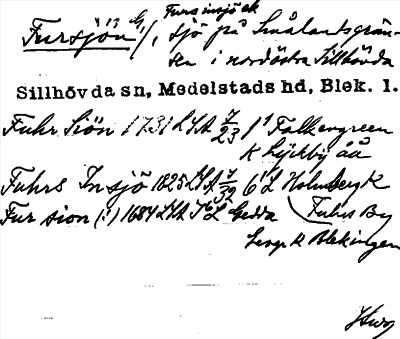 Furs insjö ek
Fursjön 13 G1/1, sjö på Smålandsgrän-
sen i nordöstra Sillhövda
Sillhövda sn, Medelstads hd, Blek. l.
Fuhr Siön 1731 LSA 7/23 1 Falkengreen
K Lyckby åå
Fuhrs In sjö 1825 LSA 7/32 6 L Holmberg K
Fur sion (!) 1684 LSA L Gedda Fuhrs By
K Blekingen